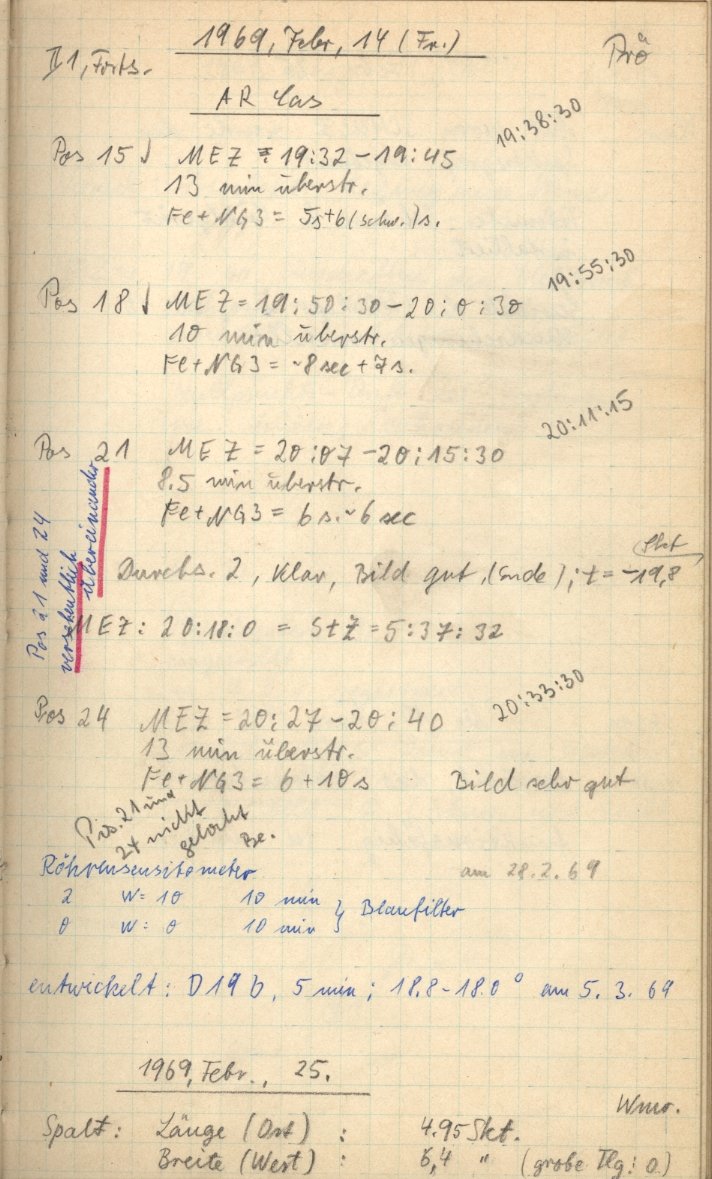 1969, Febr, 14 (Fr.)
II 1, Forts. Prö
AR Cas
19:38:30
Pos 15 MEZ = 19:32 - 19:45
13 min überstr.
Fe + NG3 = 5s + 6 (schw.) s.
19:55:30
Pos 18 MEZ = 19:50:30 - 20:0:30
10 min überstr.
Fe + NG3 = ~8 sec + 7 s.
20:11:15
Pos 21 MEZ = 20:07 - 20:15:30
8.5 min überstr.
Fe + NG3 = 6 s. ~ 6 sec
Pos 21 und 24
versehentlich
übereinander
Skt
Durchs. 2, Klar, Bild gut, (Ende); t = -19,8
MEZ: 20:18:0 = StZ = 5:37:32
20:33:30
Pos 24 MEZ = 20:27 - 20:40
13 min überstr.
Fe + NG3 = 6 + 10 s Bild sehr gut
Pos. 21 und
24 nicht
gelocht
Be.
Röhrensensitometer am 28.2.69
2 W = 10 10 min } Blaufilter
0 W = 0 10 min
entwickelt: D19b, 5 min; 18.8 - 18.0° am 5.3.69
1969, Febr., 25.
Wmr.
Spalt: Länge (Ost) : 4.95 Skt.
Breite (West) : 6,4 " (grobe Tlg: 0)